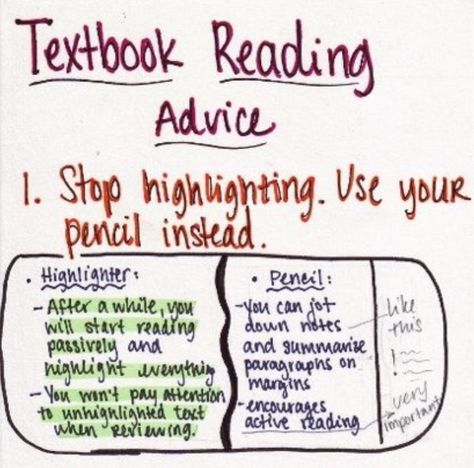 Textbook Reading
Advice
1. Stop highlighting. Use your
pencil instead.
• Highlighter:
- After a while, you
will start reading
passively and
highlight everything
- You won't pay attention
to unhighlighted text
when reviewing.
• Pencil:
- You can jot
down notes
and summarise
paragraphs on
margins
- encourages
active reading
like
this
!
very
important